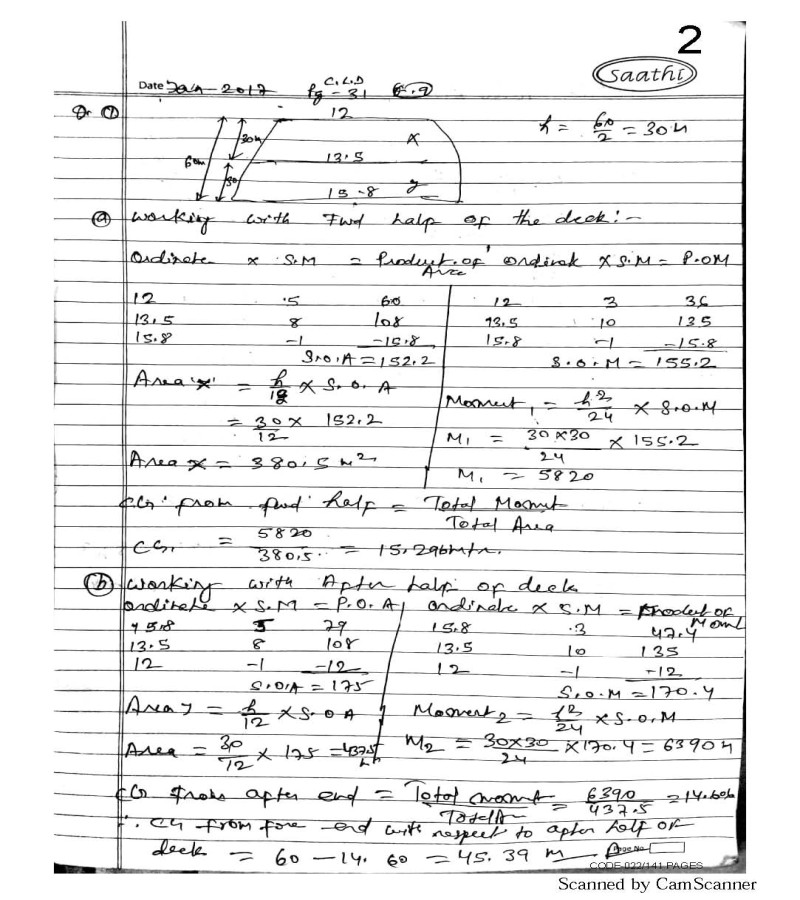 2
Saathi
Date Jan - 2017
C.L.D
Pg - 31
12
h = 60/2 = 30 M
60m
30M
x
13.5
30
15.8
y
(a) Working with Fwd half of the deck :-
Ordinate x S.M = Product of Area
Ordinate x S.M = P.OM
12 .5 60
12 3 36
13.5 8 108
13.5 10 135
15.8 -1 -15.8
15.8 -1 -15.8
S.O.A = 152.2
S.O.M = 155.2
Area 'x' = h/12 x S.O.A
Moment1 = h2/24 x S.O.M
= 30/12 x 152.2
M1 = 30x30/24 x 155.2
Area x = 380.5 M2
M1 = 5820
CG from fwd half = Total Momt / Total Area
CG1 = 5820/380.5 = 15.296mtr.
(b) Working with After half of deck
Ordinate x S.M = P.O.A
Ordinate x S.M = Product of Momt
15.8 5 79
15.8 .3 47.4
13.5 8 108
13.5 10 135
12 -1 -12
12 -1 -12
S.O.A = 175
S.O.M = 170.4
Area y = h/12 x S.O.A
Moment2 = h2/24 x S.O.M
Area = 30/12 x 175 = 437.5
M2 = 30x30/24 x 170.4 = 6390 M
CG from after end = Total momt / Total Ar = 6390/437.5 = 14.606
∴ CG from fore end with respect to after half of
deck = 60 - 14.60 = 45.39 M
Page No.
CODE-022/141 PAGES
Scanned by CamScanner